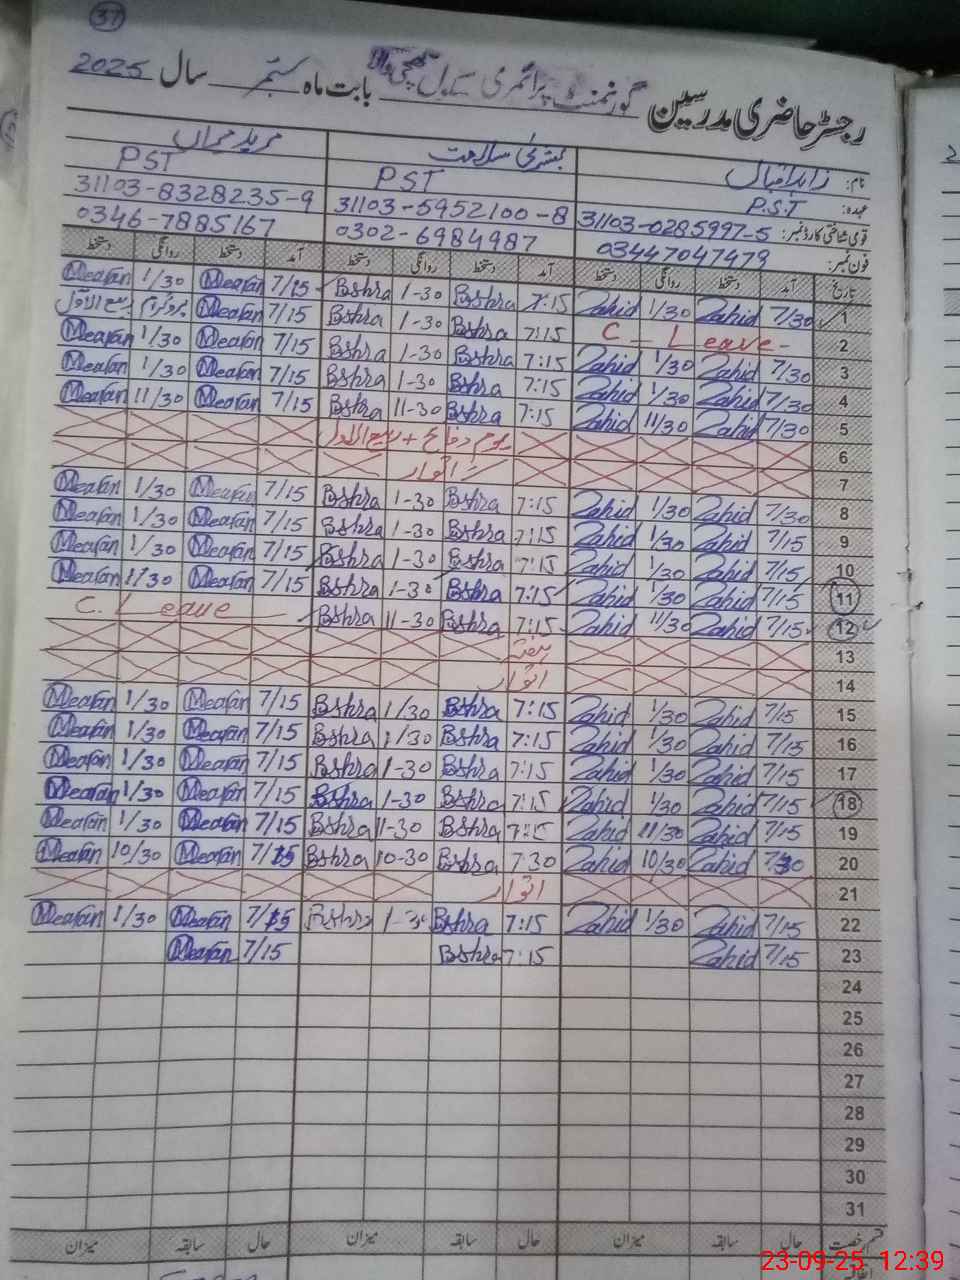 37
رجسٹر حاضری مدرسین گورنمنٹ پرائمری سکول بابت ماہ ستمبر سال 2025
نام: زاہد اقبال بشریٰ سلامت
عہدہ: P.S.T PST PST
قومی شناختی کارڈ نمبر: 31103-0285997-5 31103-5952100-8 31103-8328235-9
فون نمبر: 03447047479 0302-6984987 0346-7885167
تاریخ آمد دستخط روانگی دستخط آمد دستخط روانگی دستخط آمد دستخط روانگی دستخط
1 7/30 Zahid 1/30 Zahid 7:15 Bshra 1-30 Bshra 7/15 Mearan 1/30 Mearan
2 C - Leave - 7:15 Bshra 1-30 Bshra 7/15 Mearan پروگرام ربیع الاول
3 7/30 Zahid 1/30 Zahid 7:15 Bshra 1-30 Bshra 7/15 Mearan 1/30 Mearan
4 7/30 Zahid 1/30 Zahid 7:15 Bshra 1-30 Bshra 7/15 Mearan 1/30 Mearan
5 7/30 Zahid 11/30 Zahid 7:15 Bshra 11-30 Bshra 7/15 Mearan 11/30 Mearan
6 یوم دفاع + ربیع الاول
7 اتوار
8 7/30 Zahid 1/30 Zahid 7:15 Bshra 1-30 Bshra 7/15 Mearan 1/30 Mearan
9 7/15 Zahid 1/30 Zahid 7:15 Bshra 1-30 Bshra 7/15 Mearan 1/30 Mearan
10 7/15 Zahid 1/30 Zahid 7:15 Bshra 1-30 Bshra 7/15 Mearan 1/30 Mearan
11 7/15 Zahid 1/30 Zahid 7:15 Bshra 1-30 Bshra 7/15 Mearan 1/30 Mearan
12 7/15 Zahid 11/30 Zahid 7:15 Bshra 11-30 Bshra C. Leave
13 ہفتہ
14 اتوار
15 7/15 Zahid 1/30 Zahid 7:15 Bshra 1/30 Bshra 7/15 Mearan 1/30 Mearan
16 7/15 Zahid 1/30 Zahid 7:15 Bshra 1/30 Bshra 7/15 Mearan 1/30 Mearan
17 7/15 Zahid 1/30 Zahid 7:15 Bshra 1-30 Bshra 7/15 Mearan 1/30 Mearan
18 7/15 Zahid 1/30 Zahid 7:15 Bshra 1-30 Bshra 7/15 Mearan 1/30 Mearan
19 7/15 Zahid 11/30 Zahid 7:15 Bshra 11-30 Bshra 7/15 Mearan 1/30 Mearan
20 7:30 Zahid 10/30 Zahid 7:30 Bshra 10-30 Bshra 7/15 Mearan 10/30 Mearan
21 اتوار
22 7/15 Zahid 1/30 Zahid 7:15 Bshra 1-30 Bshra 7/15 Mearan 1/30 Mearan
23 7/15 Zahid 7:15 Bshra 7/15 Mearan
24
25
26
27
28
29
30
31
قسم رخصت حال سابقہ میزان حال سابقہ میزان حال سابقہ میزان
23-09-25 12:39